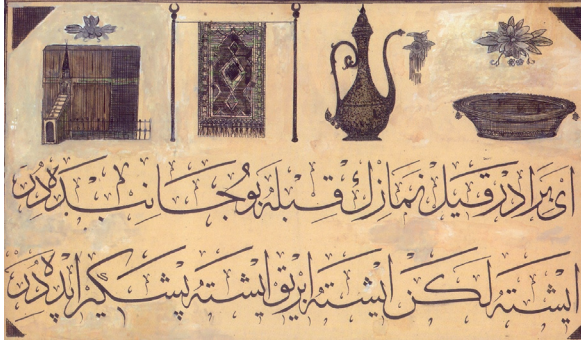 ای برادر قیل نمازك قبله بو جانبده در
ایشته لكن ایشته ابریق ایشته پشكیر اپده در